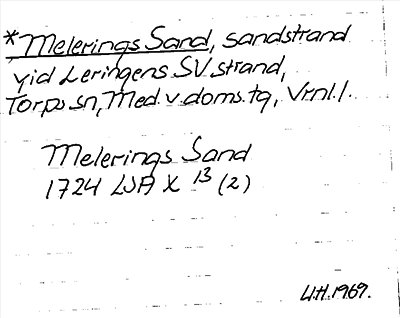 *Melerings Sand, sandstrand
vid Leringens SV strand,
Torps sn, Med. v. doms. tg, Vrnl.l.
Melerings Sand
1724 LSA X 13 (2)
U.H. 1969.